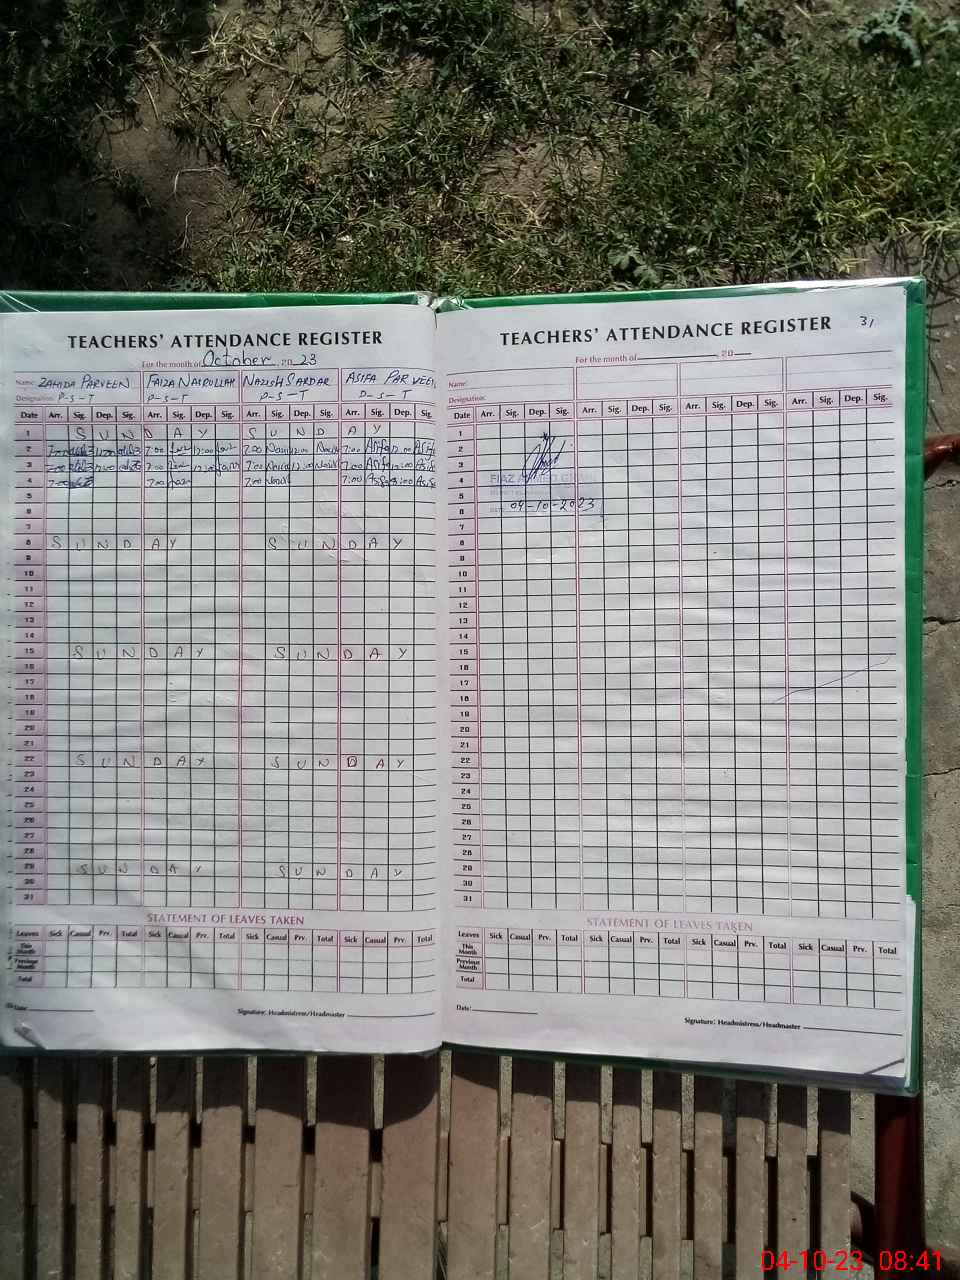 TEACHERS' ATTENDANCE REGISTER
For the month of October 20 23
Name: ZAHIDA PARVEEN FAIZA NASRULLAH NAZISH SARDAR ASIFA PARVEEN
Designation: P-S-T P-S-T P-S-T P-S-T
Date Arr. Sig. Dep. Sig. Arr. Sig. Dep. Sig. Arr. Sig. Dep. Sig. Arr. Sig. Dep. Sig.
1 S U N D A Y S U N D A Y
2 7:00 7:00 12:00 7:00 12:00 7:00 Asifa
3 7:00 7:00 7:00 12:00 7:00 Asifa
4 7:00 7:00 7:00 7:00 Asifa
5
6
7
8 S U N D A Y S U N D A Y
9
10
11
12
13
14
15 S U N D A Y S U N D A Y
16
17
18
19
20
21
22 S U N D A Y S U N D A Y
23
24
25
26
27
28
29 S U N D A Y S U N D A Y
30
31
STATEMENT OF LEAVES TAKEN
Leaves Sick Casual Prv. Total Sick Casual Prv. Total Sick Casual Prv. Total Sick Casual Prv. Total
This Month
Previous Month
Total
Date:
Signature: Headmistress/Headmaster
TEACHERS' ATTENDANCE REGISTER 31
For the month of 20
Name:
Designation:
Date Arr. Sig. Dep. Sig. Arr. Sig. Dep. Sig. Arr. Sig. Dep. Sig. Arr. Sig. Dep. Sig.
1
2
3
4 FIAZ AHMED
5
6 04-10-2023
7
8
9
10
11
12
13
14
15
16
17
18
19
20
21
22
23
24
25
26
27
28
29
30
31
STATEMENT OF LEAVES TAKEN
Leaves Sick Casual Prv. Total Sick Casual Prv. Total Sick Casual Prv. Total Sick Casual Prv. Total
This Month
Previous Month
Total
Date:
Signature: Headmistress/Headmaster
04-10-23 08:41